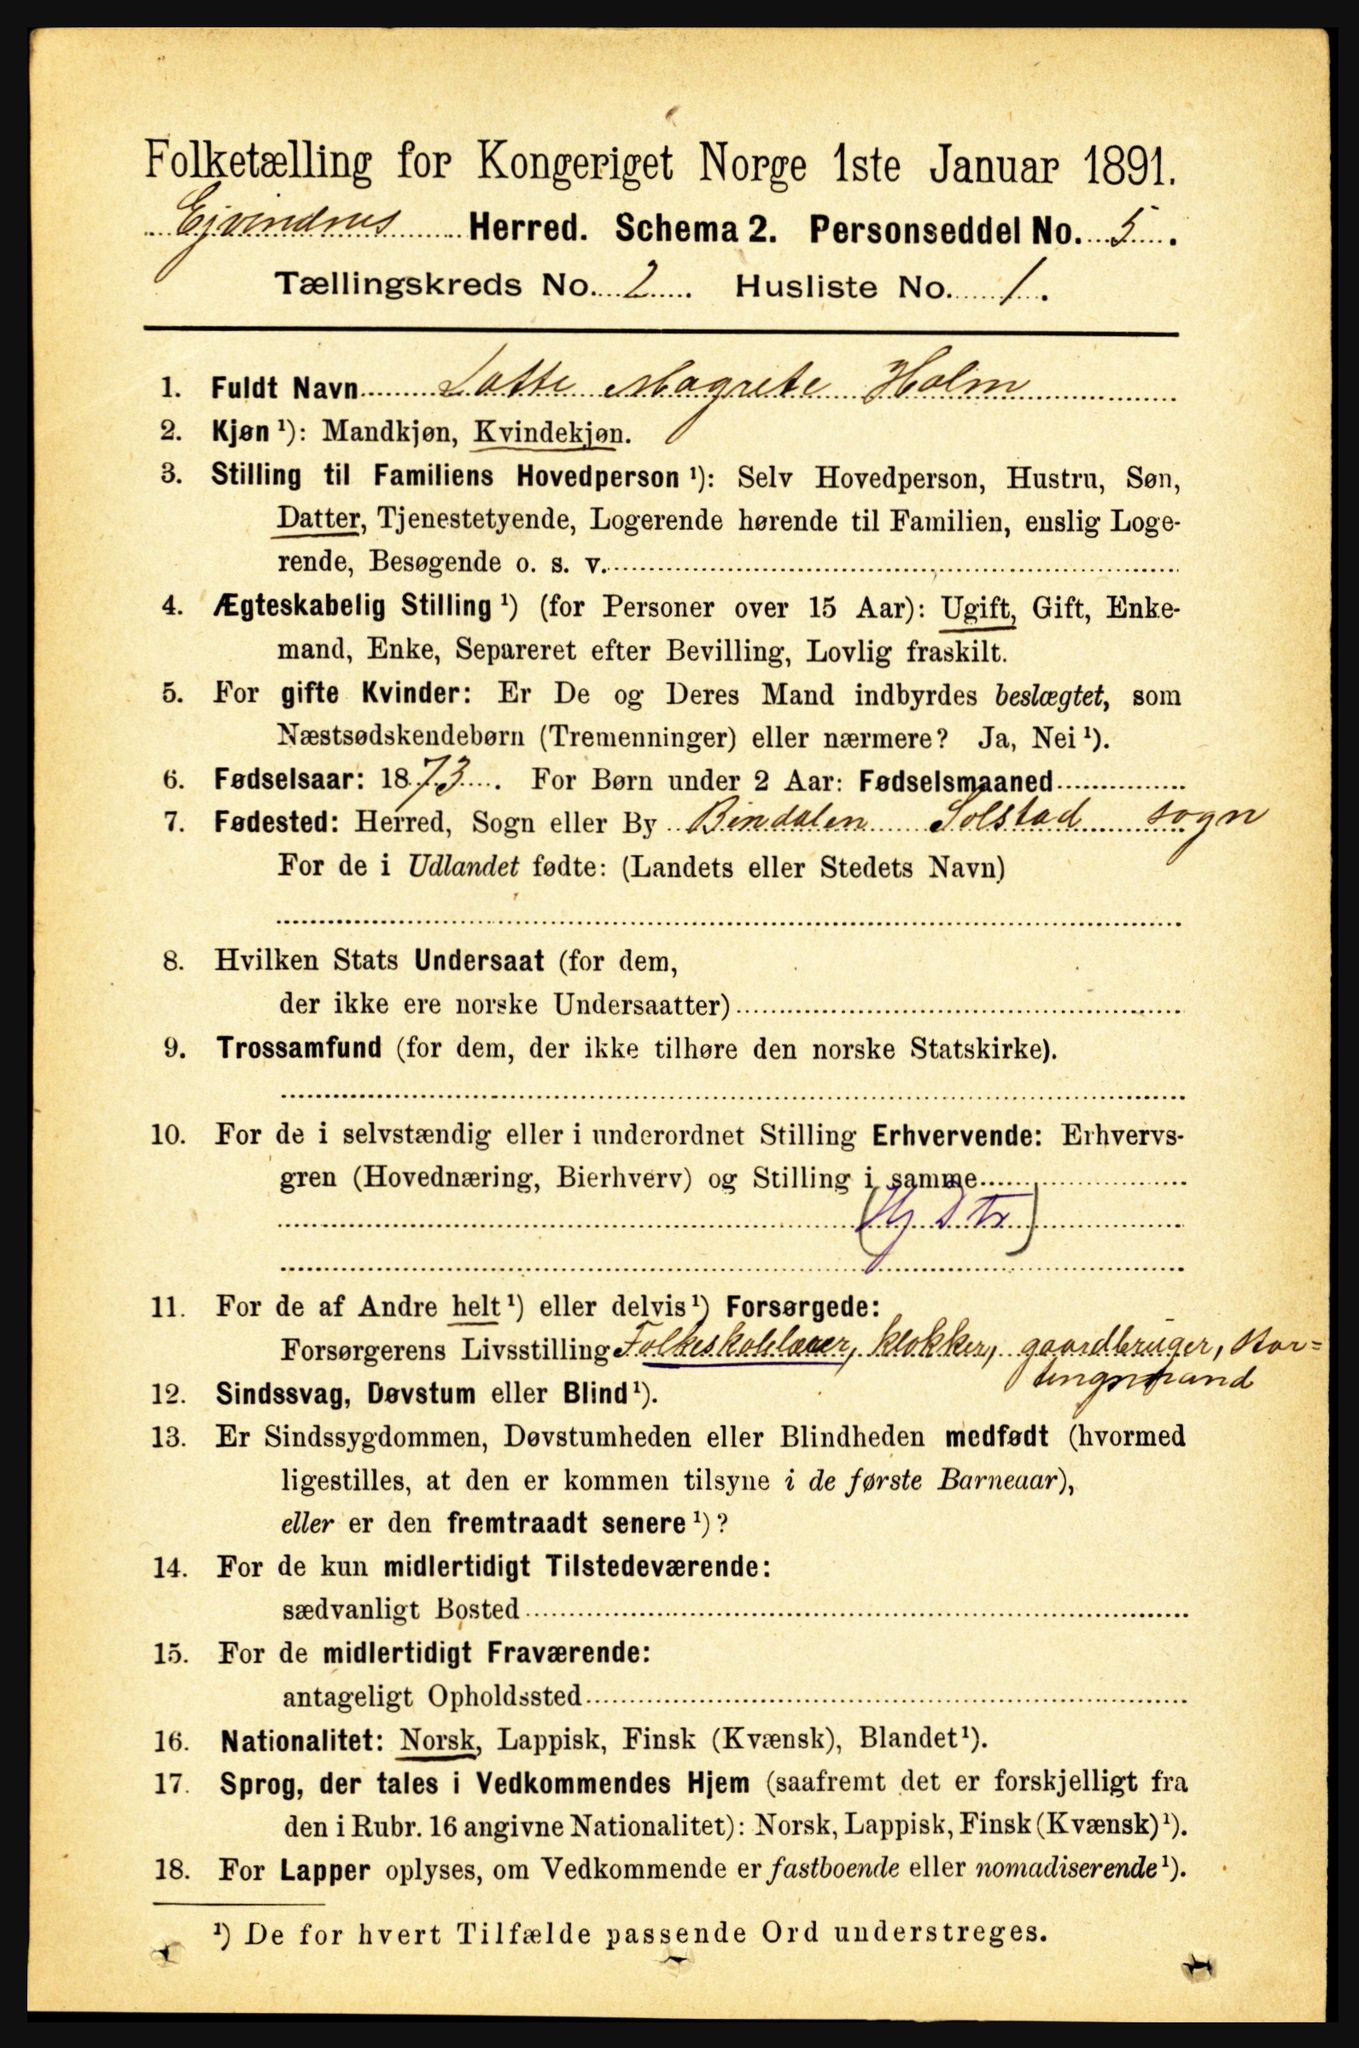 Folketælling for Kongeriget Norge 1ste Januar 1891.
Ejvindnes Herred. Schema 2. Personseddel No. 5.
Tællingskreds No. 2. Husliste No. 1.
1. Fuldt Navn Lotte Magrete Holm
2. Kjøn ¹): Mandkjøn, Kvindekjøn.
3. Stilling til Familiens Hovedperson ¹): Selv Hovedperson, Hustru, Søn,
Datter, Tjenestetyende, Logerende hørende til Familien, enslig Loge-
rende, Besøgende o. s. v.
4. Ægteskabelig Stilling ¹) (for Personer over 15 Aar): Ugift, Gift, Enke-
mand, Enke, Separeret efter Bevilling, Lovlig fraskilt.
5. For gifte Kvinder: Er De og Deres Mand indbyrdes beslægtet, som
Næstsødskendebørn (Tremenninger) eller nærmere? Ja, Nei ¹).
6. Fødselsaar: 1873. For Børn under 2 Aar: Fødselsmaaned
7. Fødested: Herred, Sogn eller By Bindalen Solstad sogn
For de i Udlandet fødte: (Landets eller Stedets Navn)
8. Hvilken Stats Undersaat (for dem,
der ikke ere norske Undersaatter)
9. Trossamfund (for dem, der ikke tilhøre den norske Statskirke).
10. For de i selvstændig eller i underordnet Stilling Erhvervende: Erhvervs-
gren (Hovednæring, Bierhverv) og Stilling i samme
11. For de af Andre helt ¹) eller delvis ¹) Forsørgede:
Forsørgerens Livsstilling Folkeskolelærer, klokker, gaardbruger, Stor=
tingsmand
12. Sindssvag, Døvstum eller Blind ¹).
13. Er Sindssygdommen, Døvstumheden eller Blindheden medfødt (hvormed
ligestilles, at den er kommen tilsyne i de første Barneaar),
eller er den fremtraadt senere ¹)?
14. For de kun midlertidigt Tilstedeværende:
sædvanligt Bosted
15. For de midlertidigt Fraværende:
antageligt Opholdssted
16. Nationalitet: Norsk, Lappisk, Finsk (Kvænsk), Blandet ¹).
17. Sprog, der tales i Vedkommendes Hjem (saafremt det er forskjelligt fra
den i Rubr. 16 angivne Nationalitet): Norsk, Lappisk, Finsk (Kvænsk) ¹).
18. For Lapper oplyses, om Vedkommende er fastboende eller nomadiserende ¹).
¹) De for hvert Tilfælde passende Ord understreges.